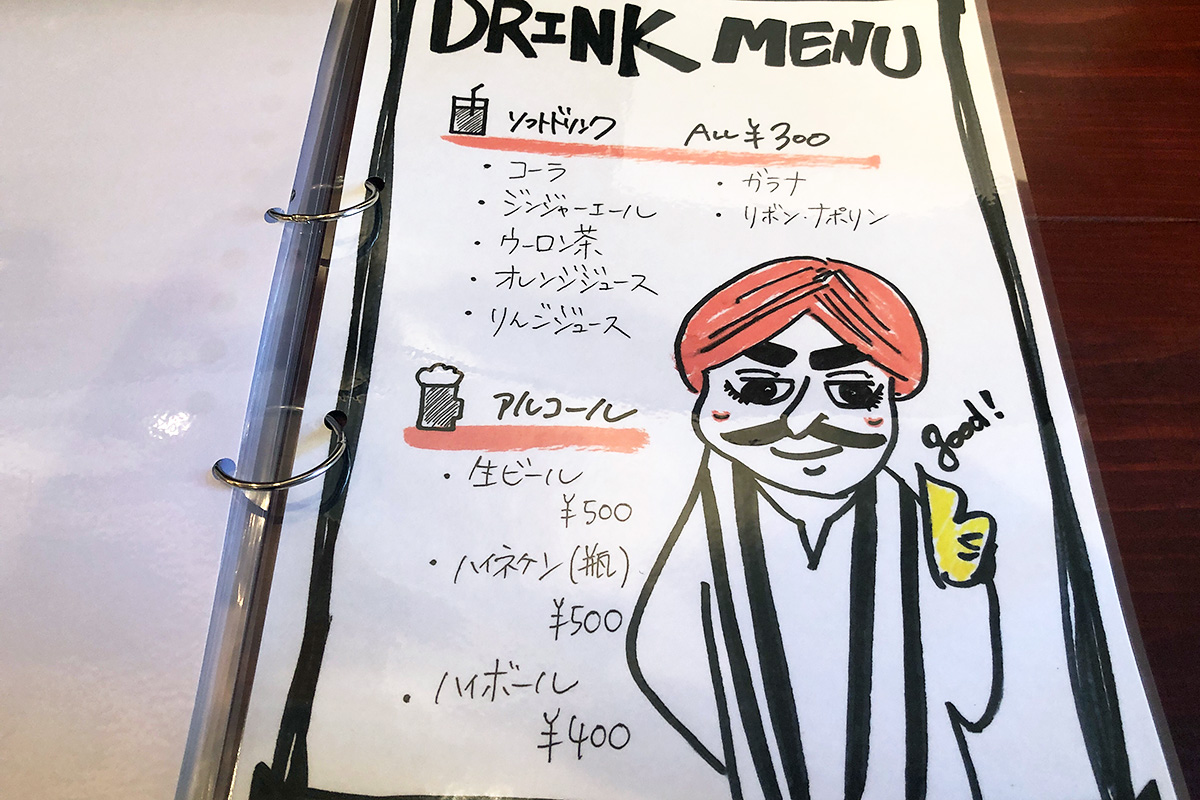 DRINK MENU
ソフトドリンク ALL ¥300
・コーラ
・ジンジャーエール
・ウーロン茶
・オレンジジュース
・りんごジュース
・ガラナ
・リボン・ナポリン
アルコール
・生ビール
¥500
・ハイネケン(瓶)
¥500
・ハイボール
¥400
good!